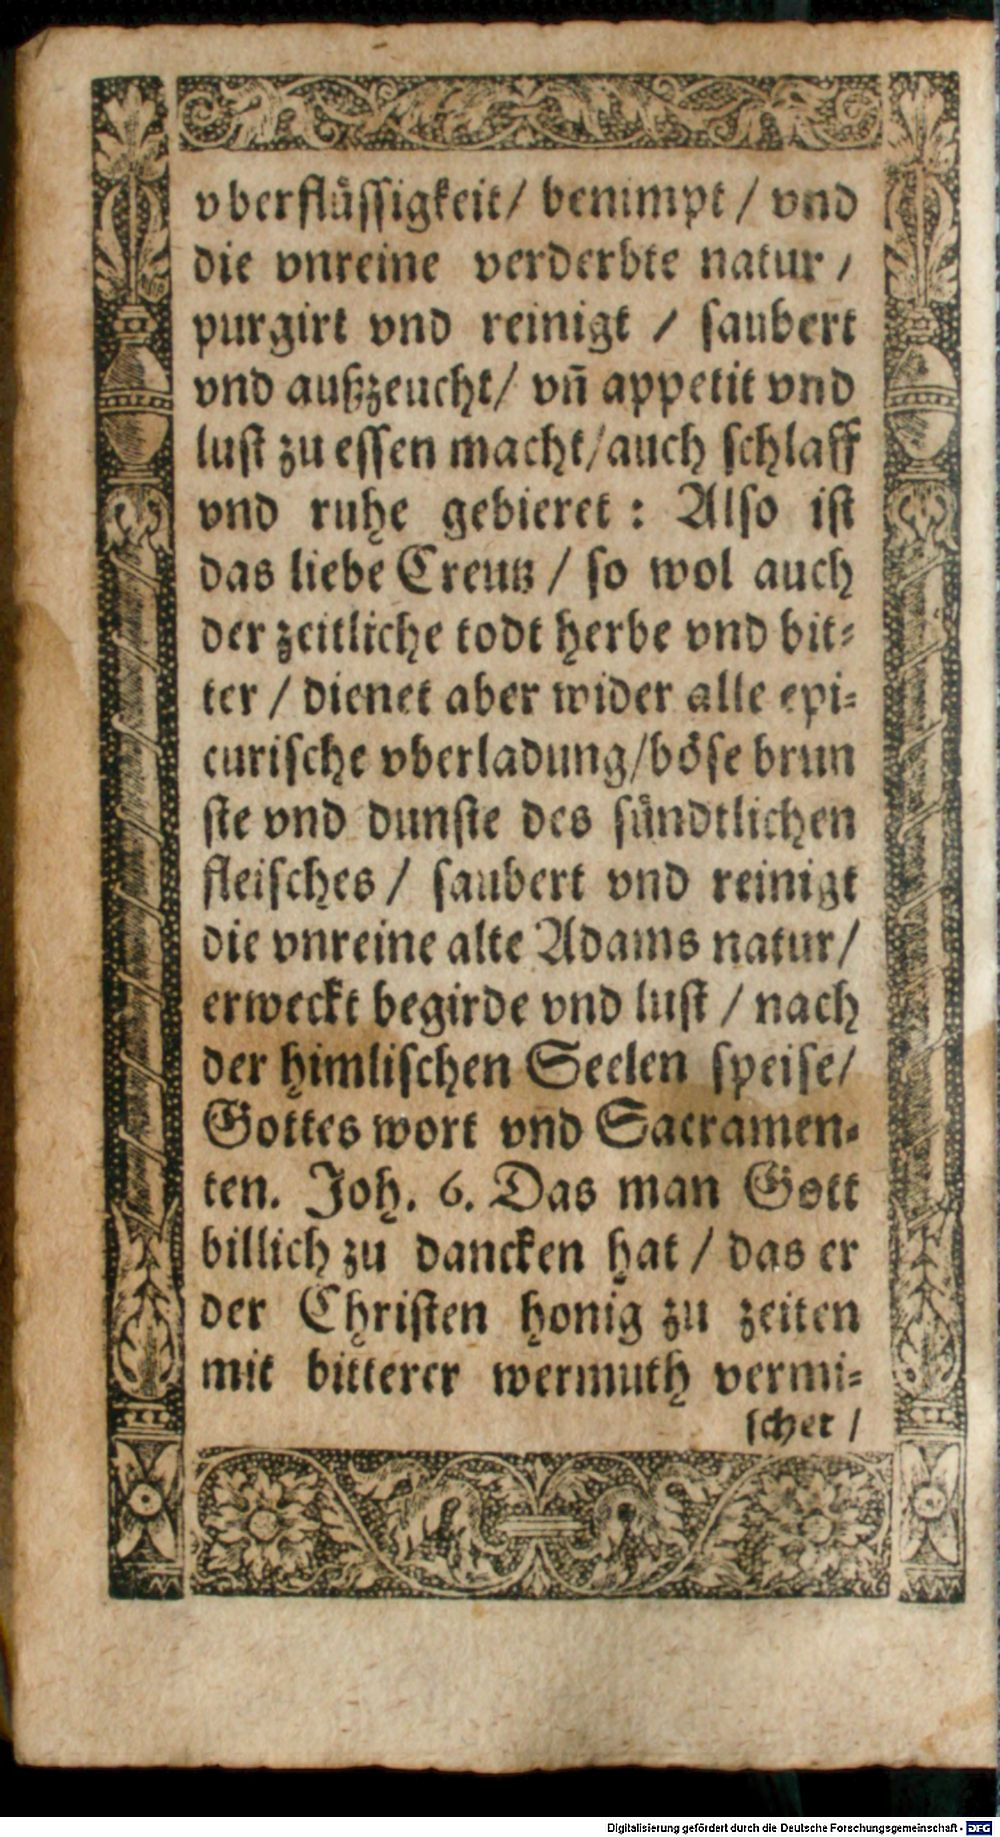 vberflüssigkeit/ benimpt / vnd
die vnreine verderbte natur /
purgirt vnd reinigt / saubert
vnd außzeucht/ vn̄ appetit vnd
lust zu essen macht/auch schlaff
vnd ruhe gebieret : Also ist
das liebe Creutz / so wol auch
der zeitliche todt herbe vnd bit-
ter / dienet aber wider alle epi-
curische vberladung/böse brun
ste vnd dunste des sündtlichen
fleisches / saubert vnd reinigt
die vnreine alte Adams natur/
erweckt begirde vnd lust / nach
der himlischen Seelen speise/
Gottes wort vnd Sacramen-
ten. Joh. 6. Das man Gott
billich zu dancken hat / das er
der Christen honig zu zeiten
mit bitterer wermuth vermi-
schet /
Digitalisierung gefördert durch die Deutsche Forschungsgemeinschaft - DFG